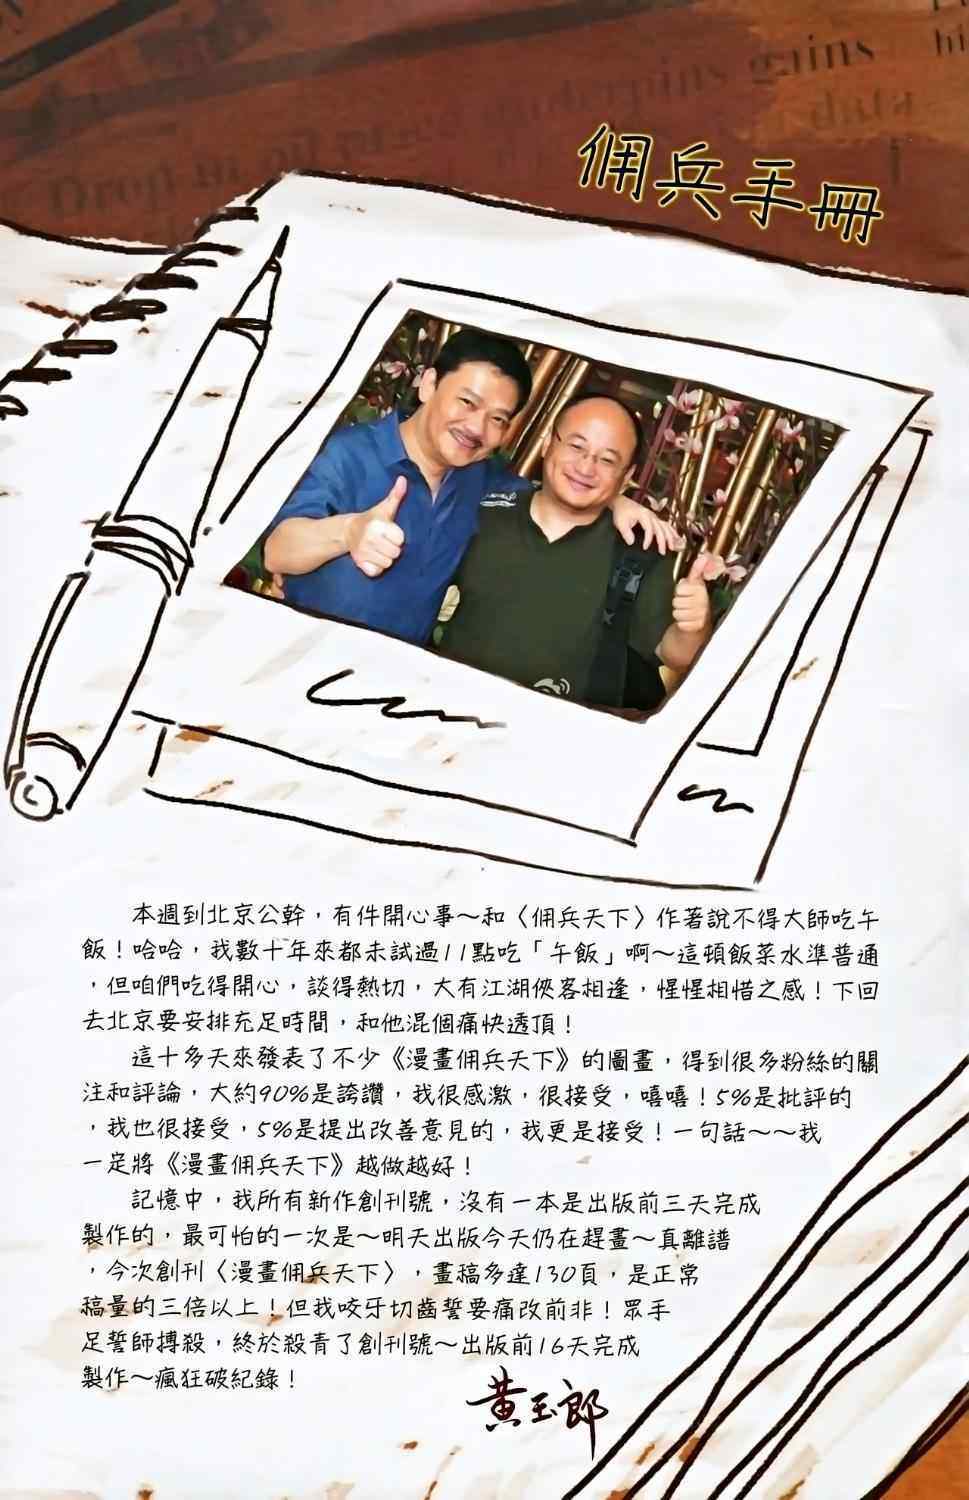 Drop in oil price underpins gains
data
hi
佣兵手冊
本週到北京公幹，有件開心事～和〈佣兵天下〉作著說不得大師吃午
飯！哈哈，我數十年來都未試過11點吃「午飯」啊～這頓飯菜水準普通
，但咱們吃得開心，談得熱切，大有江湖俠客相逢，惺惺相惜之感！下回
去北京要安排充足時間，和他混個痛快透頂！
這十多天來發表了不少《漫畫佣兵天下》的圖畫，得到很多粉絲的關
注和評論，大約90%是誇讚，我很感激，很接受，嘻嘻！5%是批評的
，我也很接受，5%是提出改善意見的，我更是接受！一句話～～我
一定將《漫畫佣兵天下》越做越好！
記憶中，我所有新作創刊號，沒有一本是出版前三天完成
製作的，最可怕的一次是～明天出版今天仍在趕畫～真離譜
，今次創刊〈漫畫佣兵天下〉，畫稿多達130頁，是正常
稿量的三倍以上！但我咬牙切齒誓要痛改前非！眾手
足誓師搏殺，終於殺青了創刊號～出版前16天完成
製作～瘋狂破紀錄！
黃玉郎